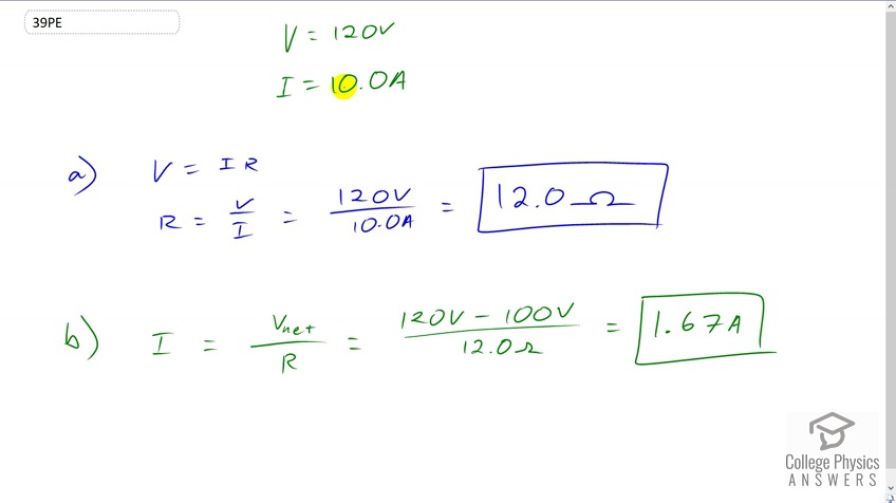 39PE
V = 120V
I = 10.0A
a) V = IR
R = V/I = 120V/10.0A = 12.0Ω
b) I = Vnet/R = 120V - 100V/12.0Ω = 1.67A
College Physics
ANSWERS